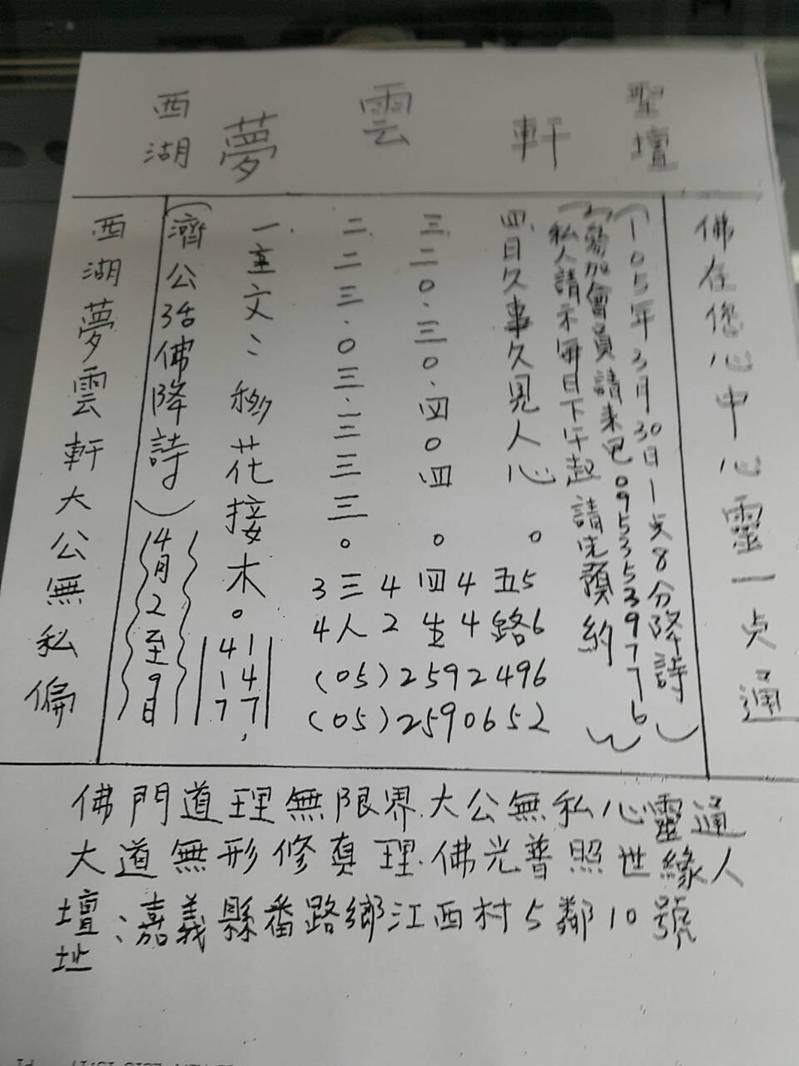 西湖夢雲軒聖壇
佛在您心中心靈一点通
(105年3月30日1点8分降詩)
(參加會員請來電0953539776)
私人請示每日下午起請先預約
四.日久事久見人心。
三.二0.三0.四0四。
二.二三.0三.三三三。
一.重文:移花接木。
3三4四4五5
4人2生4路6
(05)2592496
(05)2590652
41
14
77,
(濟公活佛降詩)
4月2至9日
西湖夢雲軒大公無私偏
佛門道理無限界.大公無私心靈通
大道無形修真理.佛光普照世緣人
壇址:嘉義縣番路鄉江西村5鄰10號